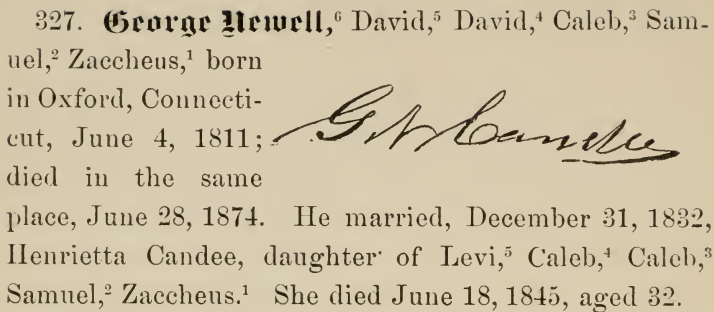 327. George Newell,⁶ David,⁵ David,⁴ Caleb,³ Sam-
uel,² Zaccheus,¹ born
in Oxford, Connecti-
cut, June 4, 1811;
G N Candee
died in the same
place, June 28, 1874. He married, December 31, 1832,
Henrietta Candee, daughter of Levi,⁵ Caleb,⁴ Caleb,³
Samuel,² Zaccheus.¹ She died June 18, 1845, aged 32.